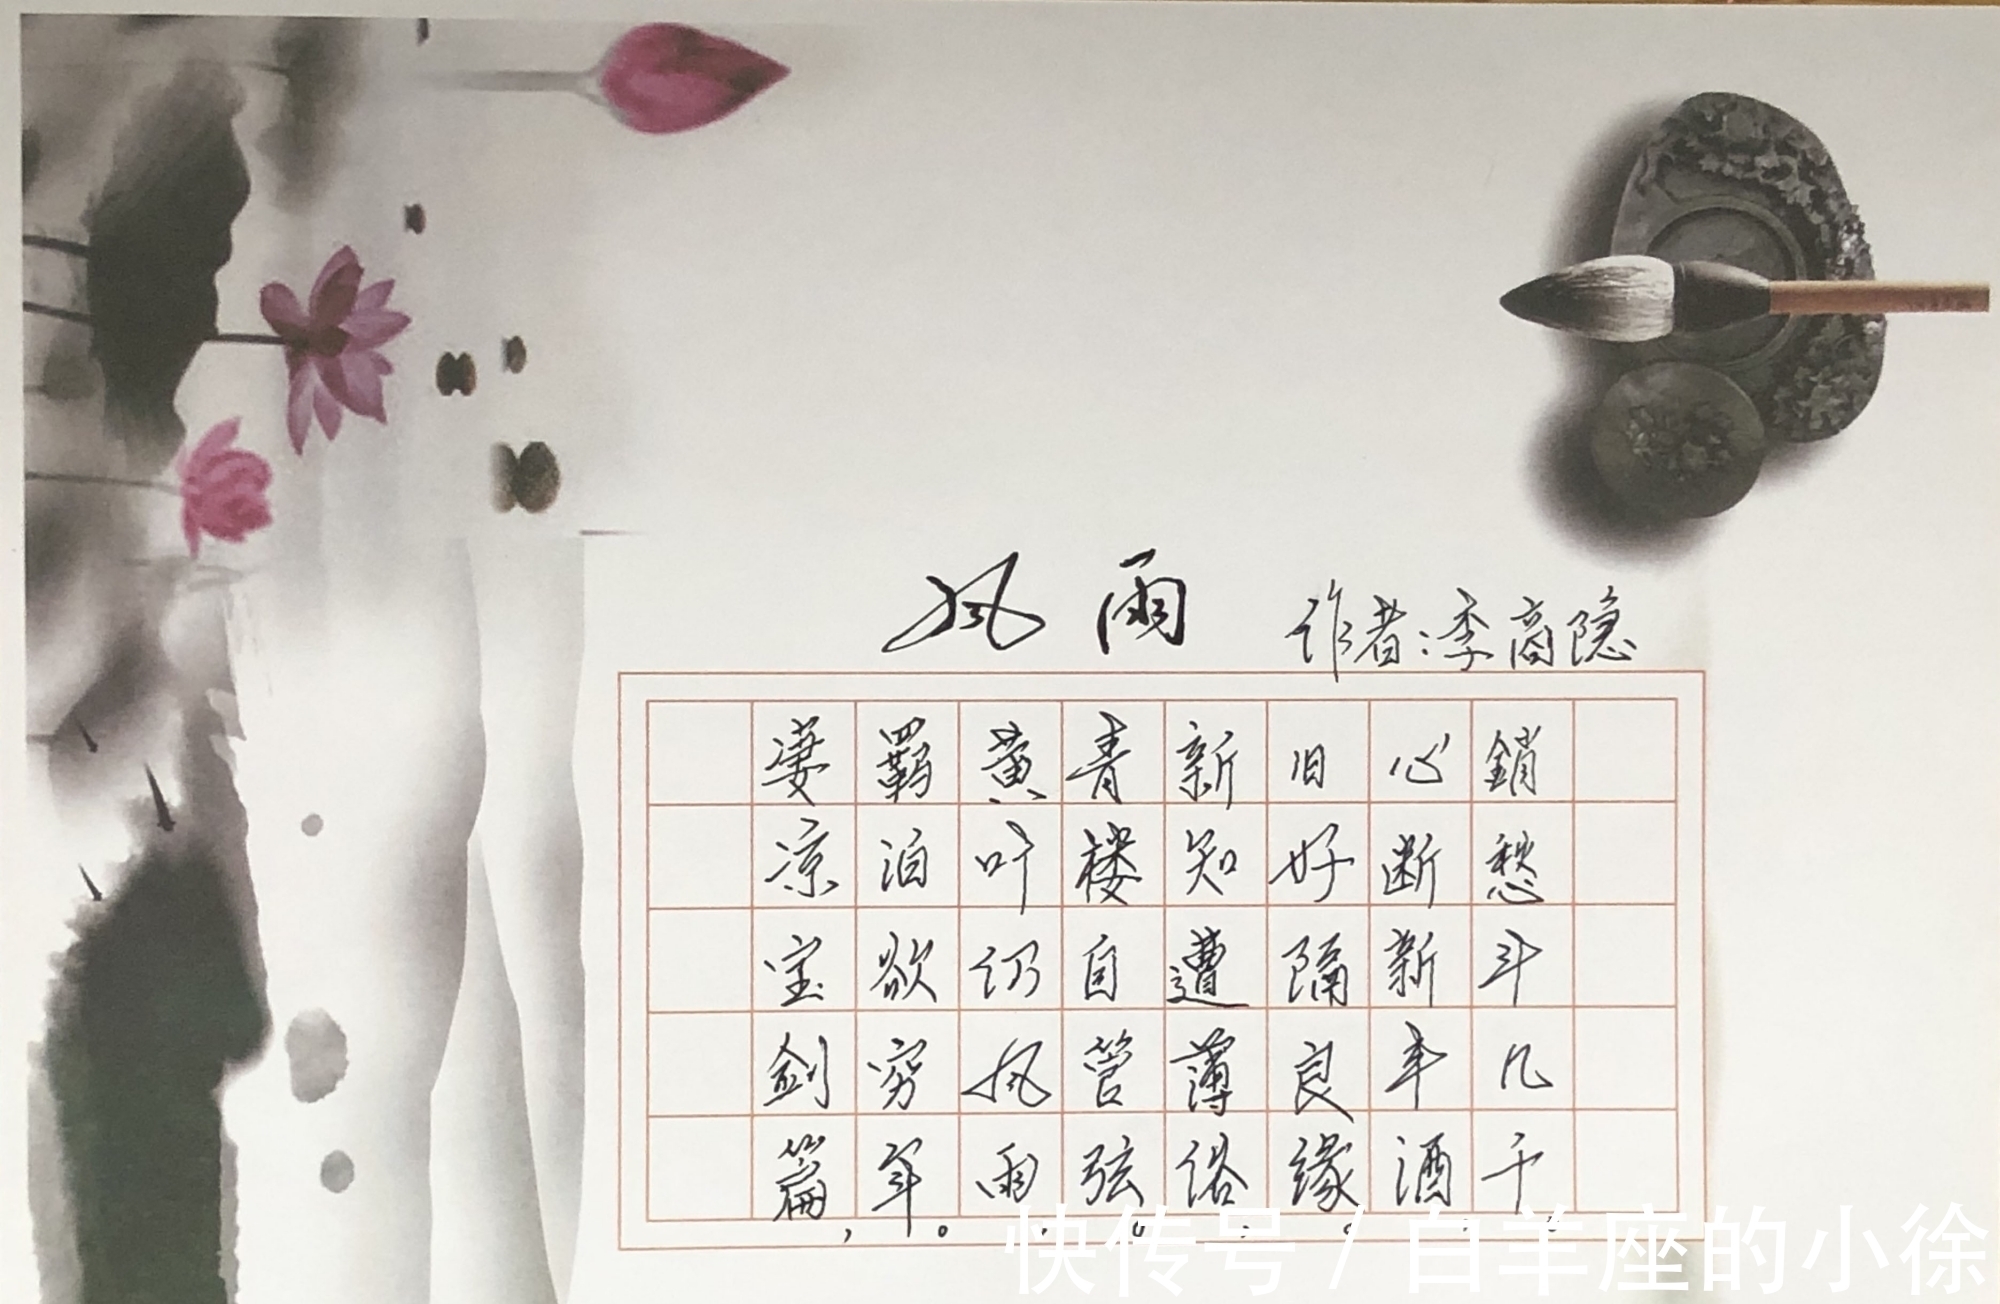 风雨 作者:李商隐
凄凉宝剑篇，
羁泊欲穷年。
黄叶仍风雨，
青楼自管弦。
新知遭薄俗，
旧好隔良缘，
心断新丰酒，
銷愁斗几千。
快传号 / 白羊座的小徐